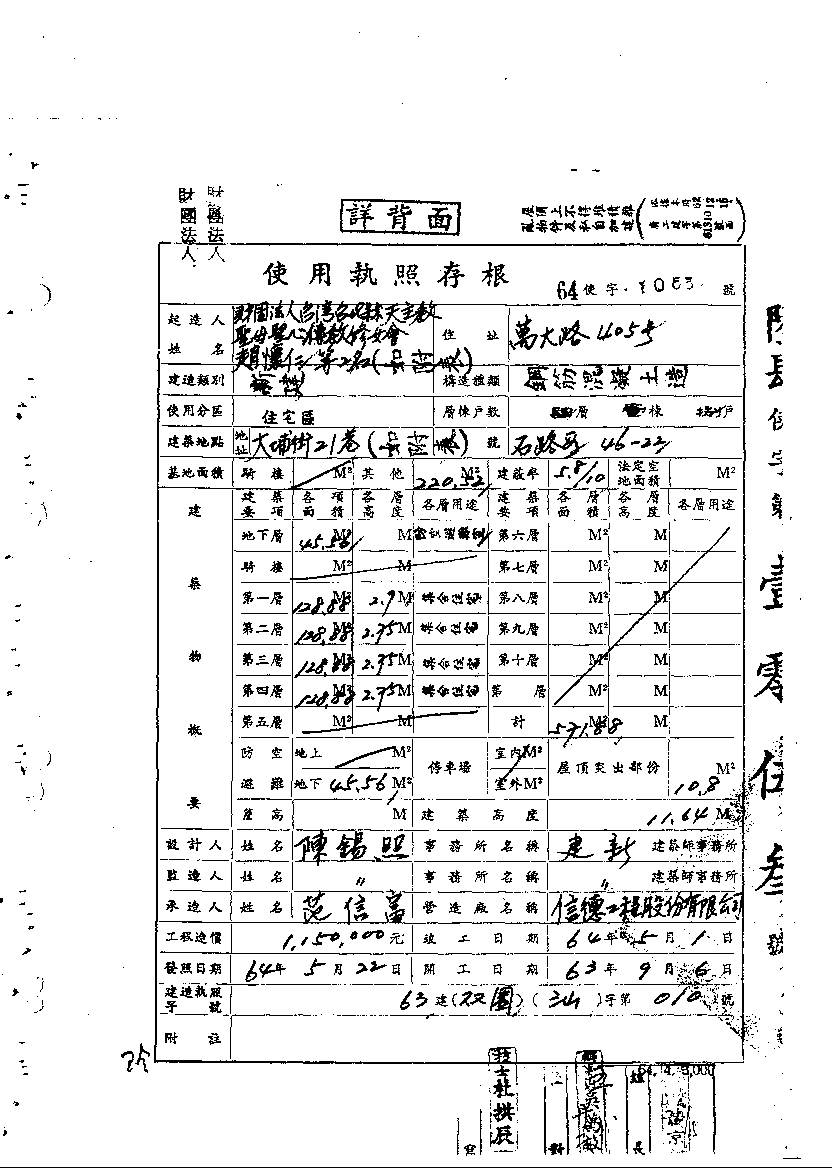 財團法人
財團法人
詳背面
使用執照存根
64使字 1053 號
起造人姓名 財團法人台灣省天主教
聖母聖心傳教修女會
趙懷仁等2名(如附表)
住址 萬大路405号
建造類別
構造種類 鋼筋混凝土造
使用分區 住宅區
層棟戶數 層 棟 戶
建築地點 地址 大埔街21巷(如附表)號 石路段 46-22
基地面積 騎樓 M² 其他 220.52 M² 建蔽率 5.8/10 法定空地面積 M²
建築物概要
建築要項 各項面積 各層高度 各層用途 建築要項 各層面積 各層高度 各層用途
地下層 45.56 M² M 第六層 M² M
騎樓 M² M 第七層 M² M
第一層 128.88 M² 2.9 M 集合住宅 第八層 M² M
第二層 128.88 M² 2.75 M 集合住宅 第九層 M² M
第三層 128.88 M² 2.75 M 集合住宅 第十層 M² M
第四層 128.88 M² 2.75 M 集合住宅 第 層 M² M
第五層 M² M 計 571.88 M² M
防空避難 地上 M² 停車場 室內 M² 屋頂突出部份 10.8 M²
地下 45.56 M² 室外 M²
簷高 M 建築高度 11.64 M
設計人 姓名 陳錫照 事務所名稱 建新 建築師事務所
監造人 姓名 〃 事務所名稱 〃 建築師事務所
承造人 姓名 范信富 營造廠名稱 信德工程股份有限公司
工程造價 1,150,000元 竣工日期 64年5月1日
發照日期 64年5月22日 開工日期 63年9月6日
建造執照字號 63建(双園)(34)字第010號
附註
壹零伍叁號
技士杜拱辰